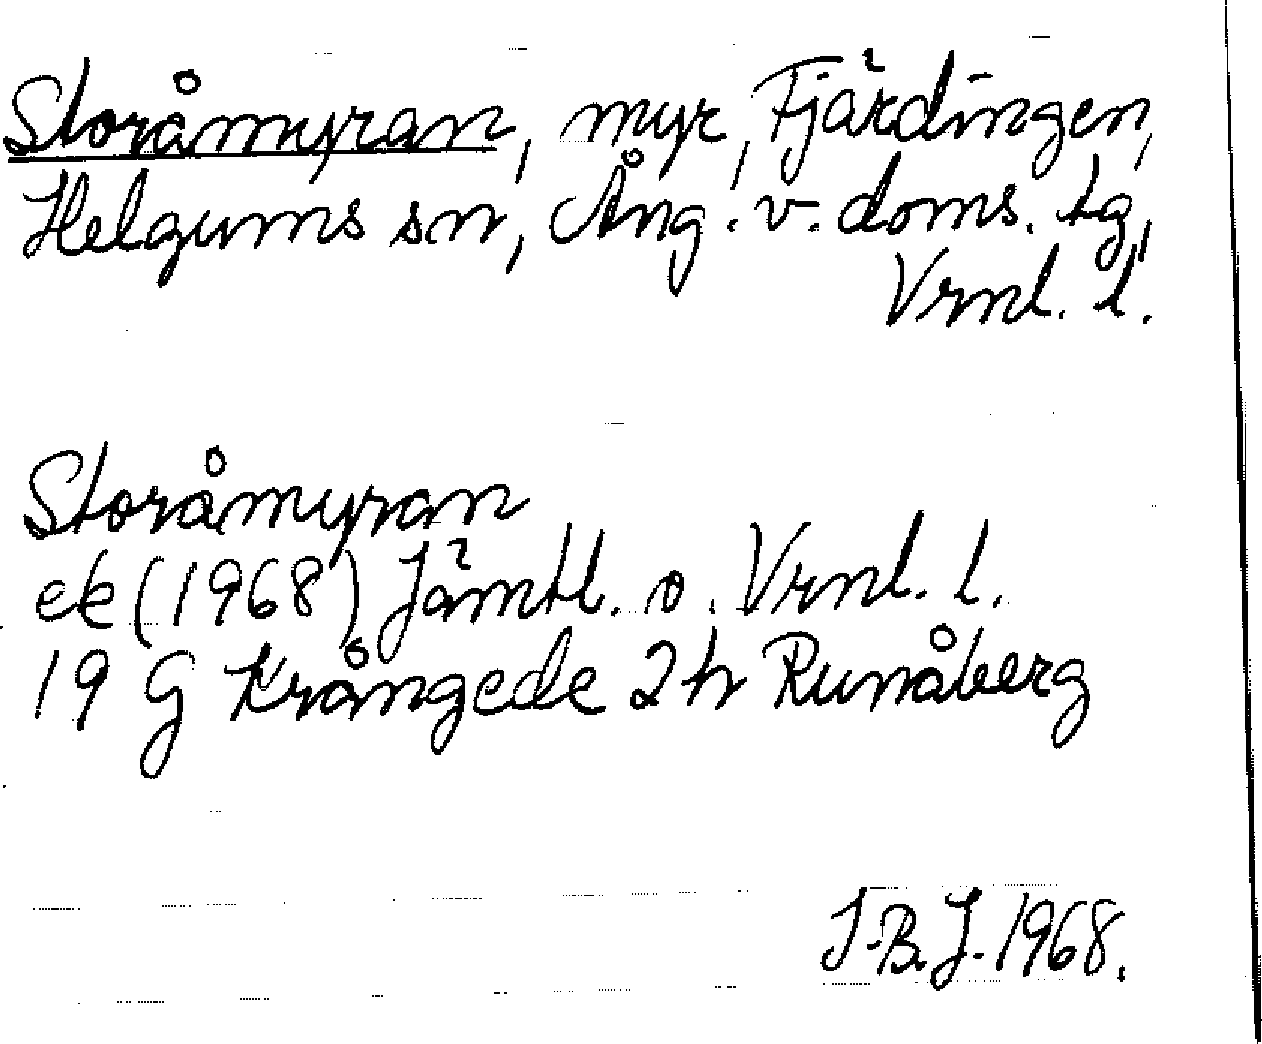 Storåmyran, myr, Fjärdingen,
Helgums sn, Ång. v. doms. tg,
Vrnl. l.
Storåmyran
ek (1968) Jämtl. o. Vrnl. l.
19 G Krångede 2 h Runåberg
J-B.J. 1968.